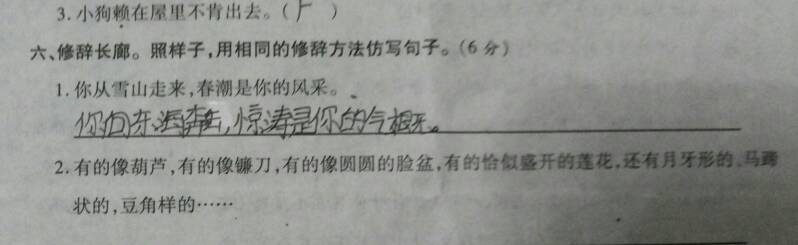 3.小狗赖在屋里不肯出去。( )
六、修辞长廊。照样子,用相同的修辞方法仿写句子。(6分)
1.你从雪山走来,春潮是你的风采。
你向东海奔去,惊涛是你的气概。
2.有的像葫芦,有的像镰刀,有的像圆圆的脸盆,有的恰似盛开的莲花,还有月牙形的、马蹄
状的,豆角样的……